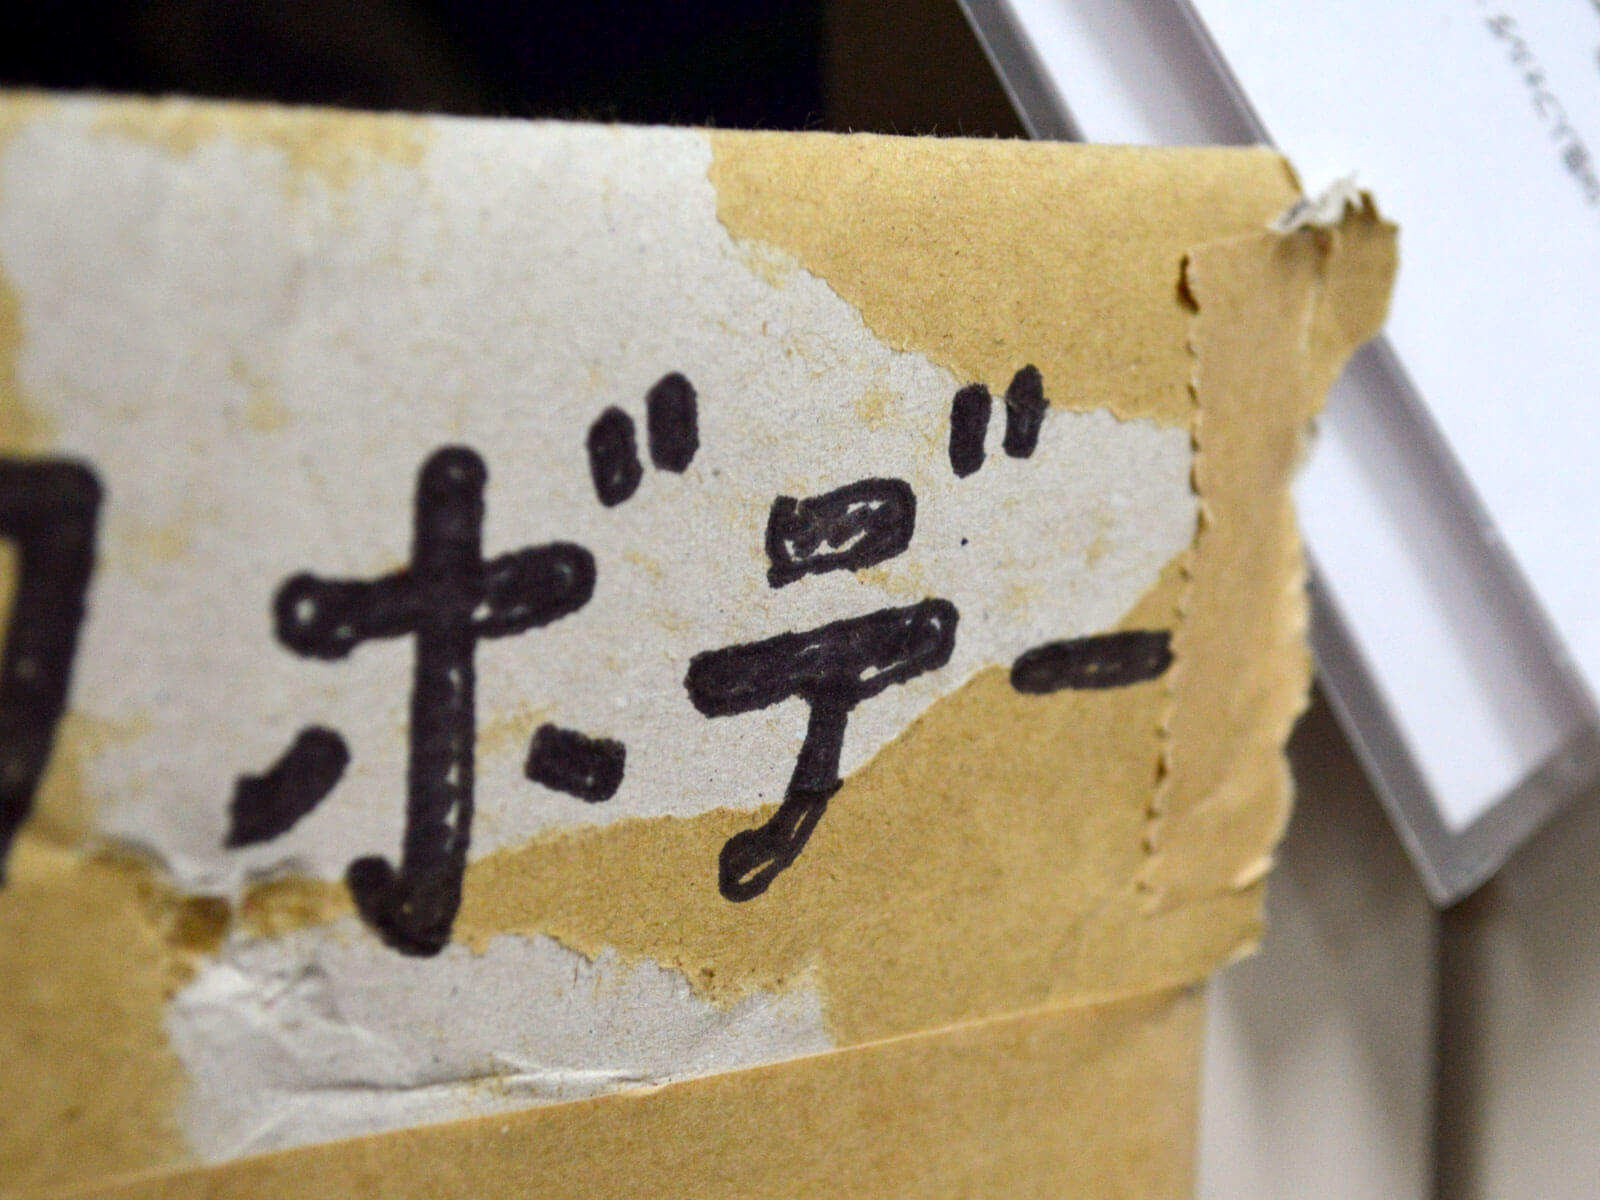 ボデー